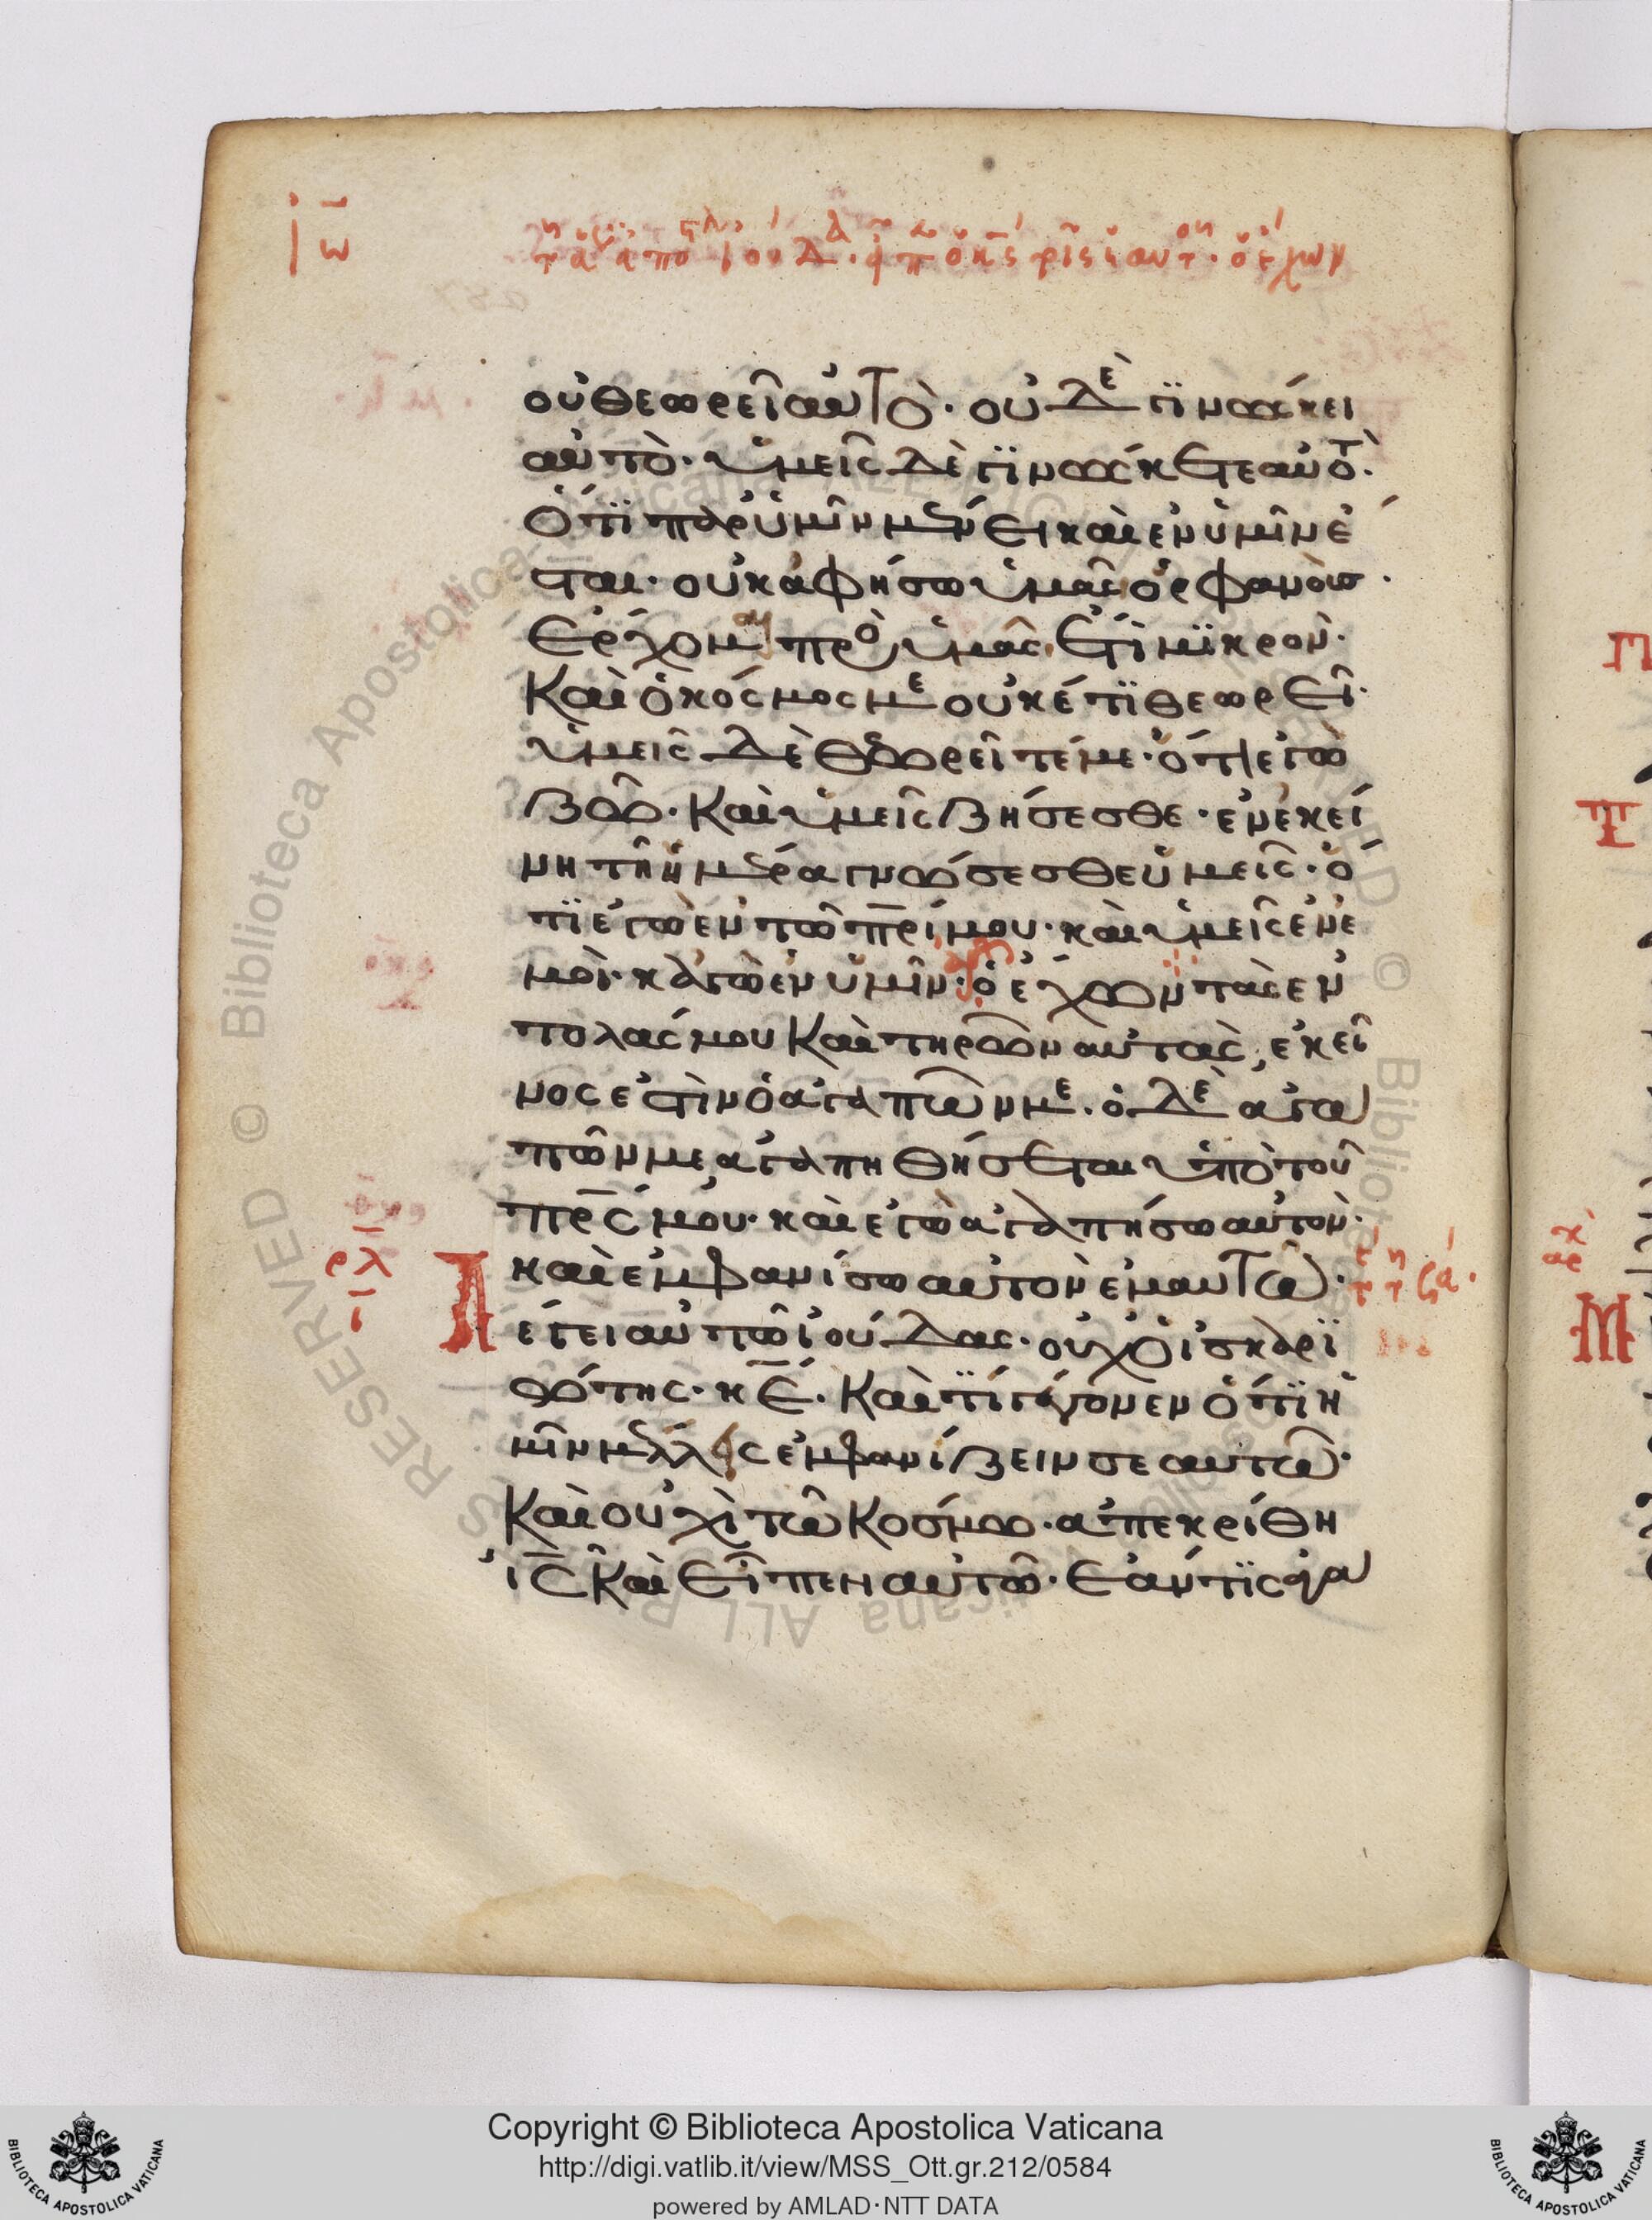 ἰω̄
οὐ θεωρεῖ αὐτὸ· οὐδὲ γινώσκει
αὐτὸ· ὑμεῖς δὲ γινώσκετε αὐτὸ·
ὅτι παρ ὑμῖν μένει καὶ ἐν ὑμῖν ἔ
σται· οὐκ ἀφήσω ὑμᾶς ὀρφανούς·
Ἔρχομαι πρὸς ὑμᾶς. Ἔτι μικρὸν·
Καὶ ὁ κόσμος με οὐκέτι θεωρεῖ·
ὑμεῖς δὲ θεωρεῖτέ με· ὅτι ἐγὼ
ζῶ· Καὶ ὑμεῖς ζήσεσθε· ἐν ἐκεί
νη τῆ ἡμέρα γνώσεσθε ὑμεῖς· ὅ
τι ἐγὼ ἐν τῶ πρι̅ μου· καὶ ὑμεῖς ἐν ἐ
μοὶ· κἀγὼ ἐν ὑμῖν· ὁ ἔχων τὰς ἐν
τολάς μου Καὶ τηρῶν αὐτὰς, ἐκεῖ
νος ἐστὶν ὁ ἀγαπῶν με· ὁ δὲ ἀγα
πῶν με, ἀγαπηθήσεται ὑπὸ τοῦ
πρς̅ μου· καὶ ἐγὼ ἀγαπήσω αὐτὸν·
καὶ ἐμφανίσω αὐτὸν ἐμαυτῶ·
Λέγει αὐτῶ ἰούδας· οὐχ ὁ ἰσκαρι
ώτης· κ̅ε̅· Καὶ τί γέγονεν ὅτι ἡ
μῖν μέλλεις ἐμφανίζειν σεαυτὸν·
Καὶ οὐχὶ τῶ Κόσμω· ἀπεκρίθη
ι̅ς̅ Καὶ Εἶπεν αὐτῶ· Ἐάν τις ἀγα
ρλ
ι
Copyright © Biblioteca Apostolica Vaticana
http://digi.vatlib.it/view/MSS_Ott.gr.212/0584
powered by AMLAD·NTT DATA
BIBLIOTECA APOSTOLICA VATICANA
BIBLIOTECA APOSTOLICA VATICANA